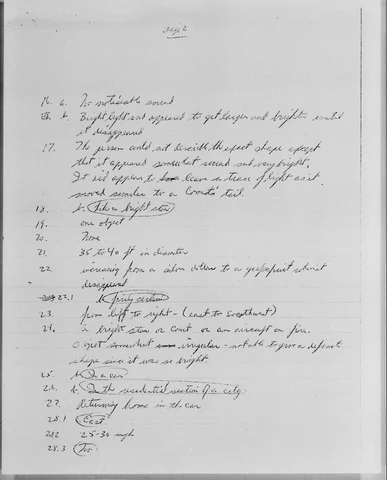 Page 2
16. a. No noticeable sound
b. Bright light and appeared to get larger and brighter until
it disappeared
17. The person could not describe the exact shape except
that it appeared somewhat round and very bright.
It did appear to leave a trace of light as it
moved similar to a Comets' tail.
18. b. Like a bright star
19. one object
20. None
21. 35 to 40 ft in diameter
22. increasing from a silver dollar to a grapefruit when it
disappeared
22.1 b. fairly certain
23. from left to right - (east to southwest)
24. a bright star or comet or an aircraft on fire.
Object somewhat irregular - not able to give a definite
shape since it was so bright
25. b. In a car
26. b. In the residential section of a city
27. Returning home in the car
28.1 East
28.2 25-30 mph
28.3 No